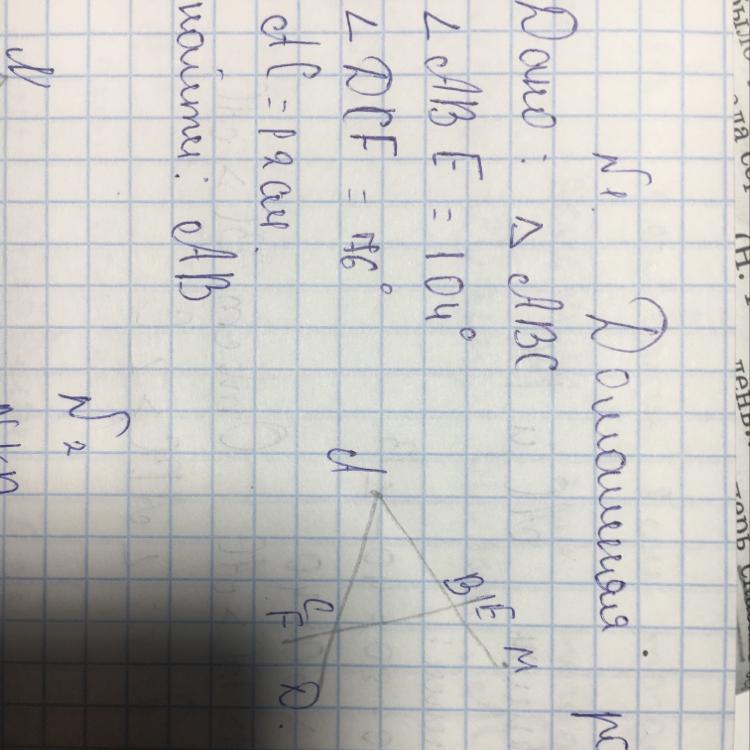 Домашняя
№1.
Дано: △ ABC
∠ ABE = 104°
∠ DCF = 76°
AC = 12 см
найти: AB
A
B
E
M
C
F
D
№2
N